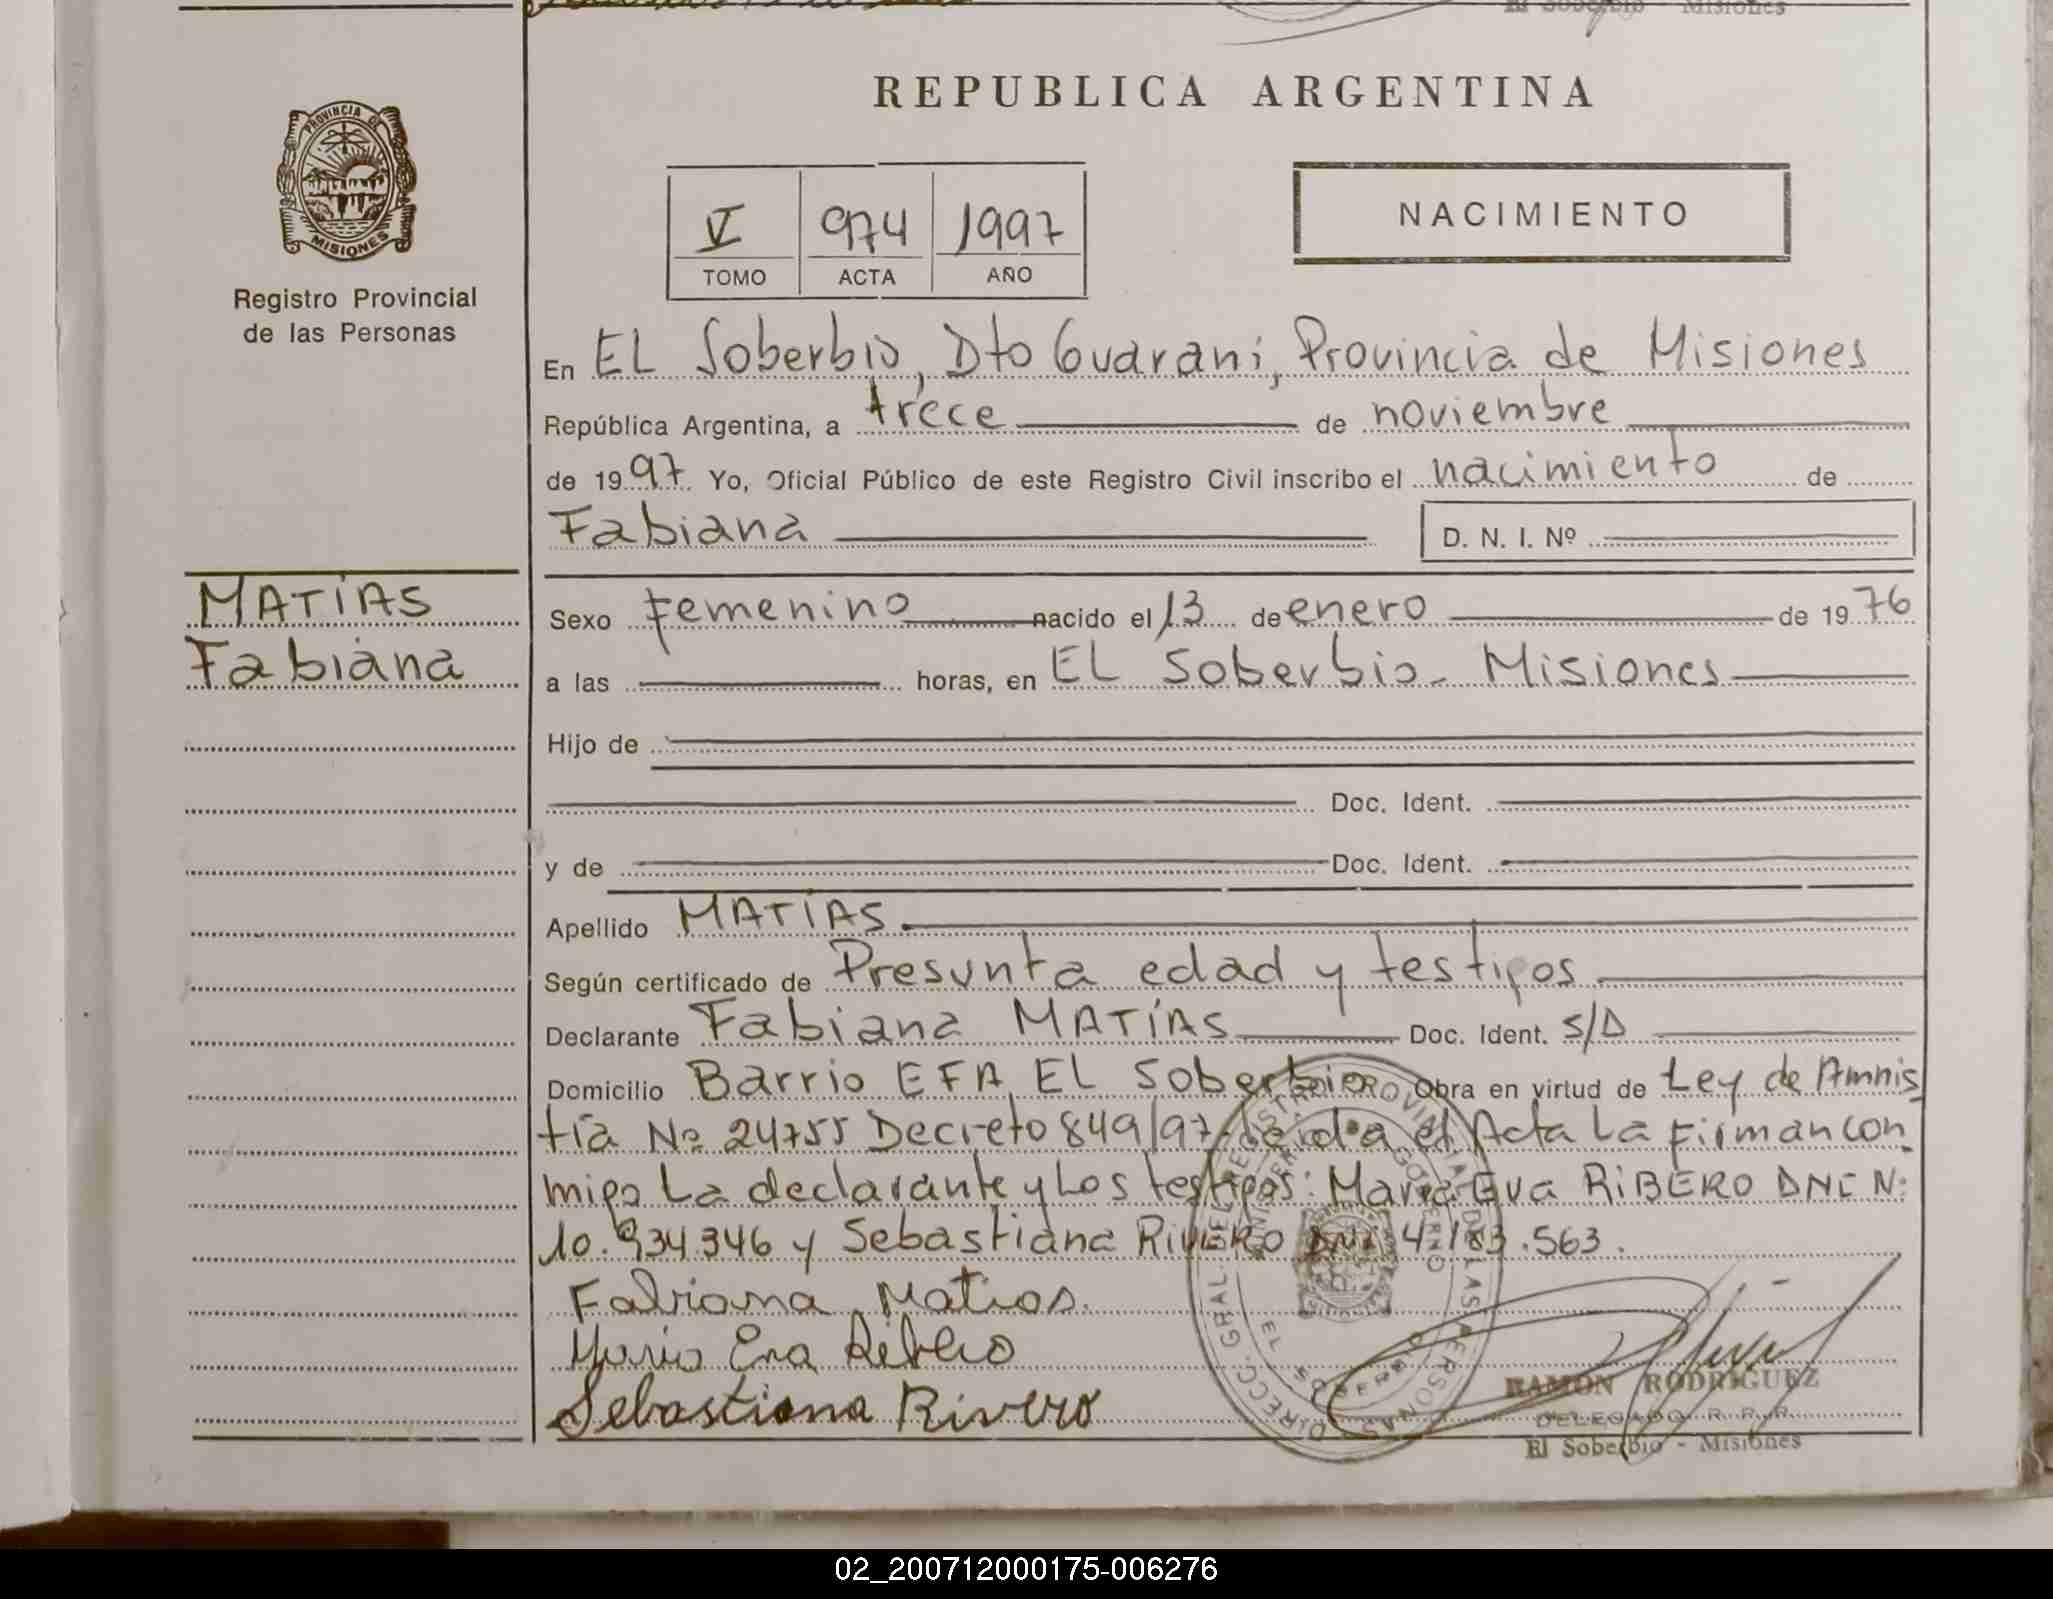 El Soberbio - Misiones
REPUBLICA ARGENTINA
PROVINCIA DE
MISIONES
Registro Provincial
de las Personas
V 974 1997
TOMO ACTA AÑO
NACIMIENTO
En EL Soberbio, Dto Guarani, Provincia de Misiones
República Argentina, a trece de noviembre
de 1997 Yo, Oficial Público de este Registro Civil inscribo el nacimiento de
Fabiana D. N. I. Nº
MATÍAS
Fabiana
Sexo Femenino nacido el 13 de enero de 1976
a las horas, en EL Soberbio - Misiones
Hijo de
Doc. Ident.
y de Doc. Ident.
Apellido MATÍAS
Según certificado de Presunta edad y testigos
Declarante Fabiana MATÍAS Doc. Ident. S/D
Domicilio Barrio EFA EL Soberbio Obra en virtud de Ley de Amnis
tía Nº 24755 Decreto 849/97 el Acta La Firman con
migo La declarante y Los testigos: María Eva RIBERO DNI N:
10.934.346 y Sebastiana RIVERO DNI 4.183.563.
Fabiana Matias.
Maria Eva Ribero
Sebastiana Rivero
DIRECC. GRAL. DEL REGISTRO PROVINCIAL DE LAS PERSONAS
EL SOBERBIO
RAMON RODRIGUEZ
DELEGADO R. P. P.
El Soberbio - Misiones
02_200712000175-006276